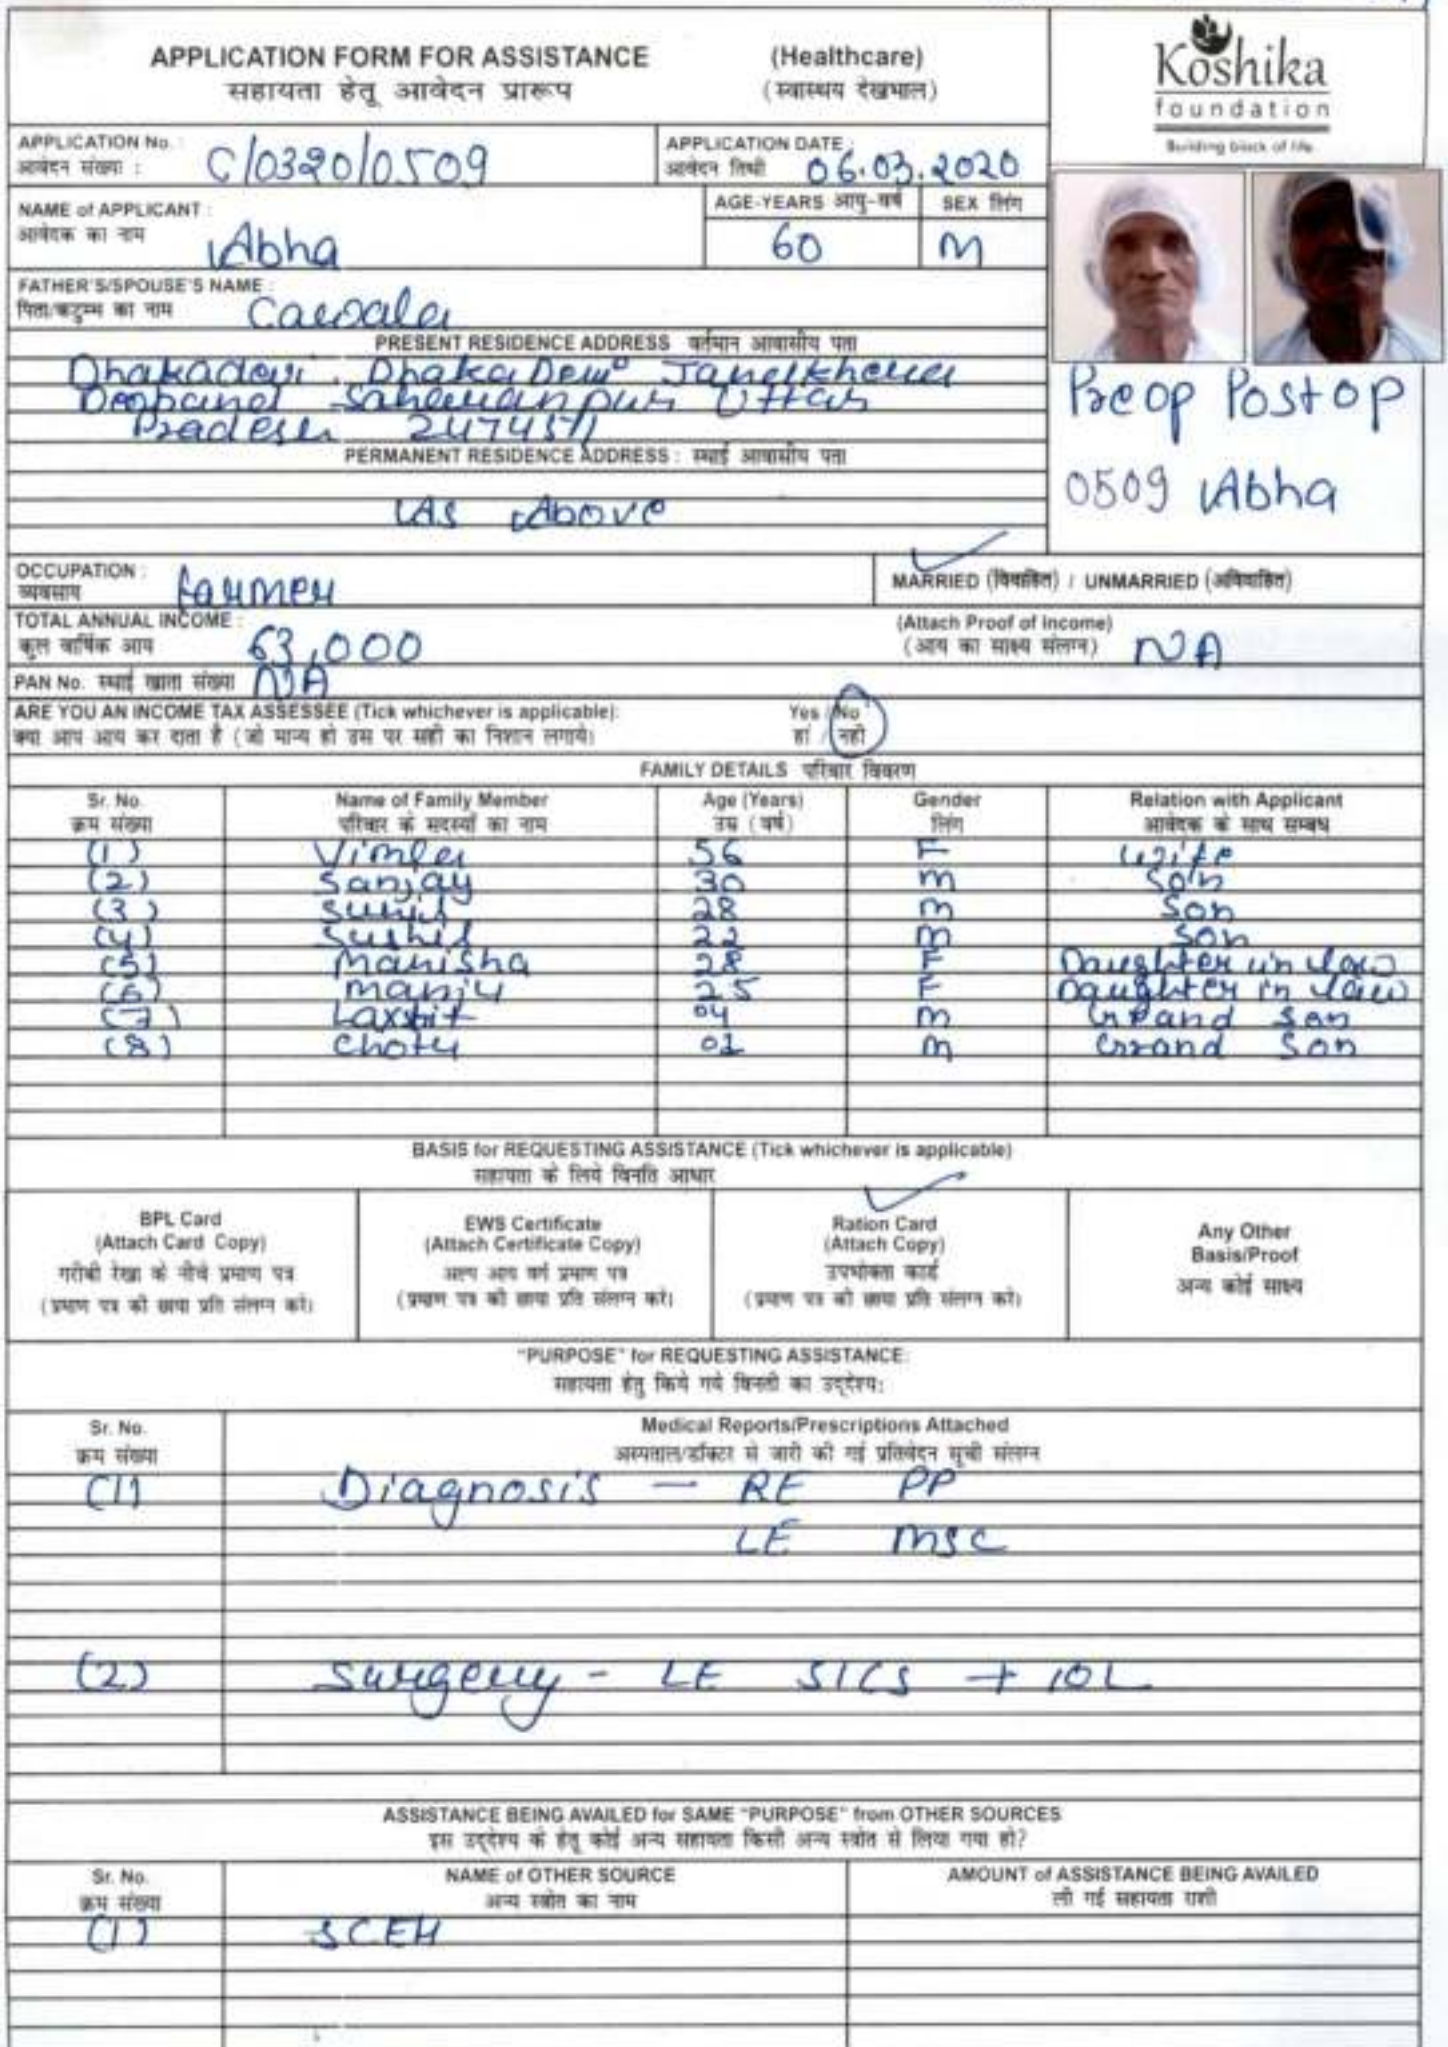 APPLICATION FORM FOR ASSISTANCE (Healthcare)
सहायता हेतू आवेदन प्रारूप (स्वास्थय देखभाल)
Koshika
foundation
Building block of life
APPLICATION No. : C/0320/0509
आवेदन संख्या :
APPLICATION DATE : 06.03.2020
आवेदन तिथी
NAME of APPLICANT : Abha
आवेदक का नाम
AGE-YEARS आयु-वर्ष 60
SEX लिंग M
FATHER'S/SPOUSE'S NAME :
पिता/कटुम्ब का नाम
PRESENT RESIDENCE ADDRESS वर्तमान आवासीय पता
Dhakadevi Dhaka Devi
Deoband Saharanpur Uttar
Pradesh
PERMANENT RESIDENCE ADDRESS : स्थाई आवासीय पता
As Above
Preop Postop
0509 Abha
OCCUPATION : farmer
व्यवसाय
MARRIED (विवाहित) / UNMARRIED (अविवाहित)
TOTAL ANNUAL INCOME : 63,000
कुल वार्षिक आय
(Attach Proof of Income) NA
(आय का साक्ष्य संलग्न)
PAN No. स्थाई खाता संख्या NA
ARE YOU AN INCOME TAX ASSESSEE (Tick whichever is applicable): Yes / No
क्या आप आय कर दाता है (जो मान्य हो उस पर सही का निशान लगाये) हां / नहीं
FAMILY DETAILS परिवार विवरण
Sr. No. Name of Family Member Age (Years) Gender Relation with Applicant
क्रम संख्या परिवार के सदस्यों का नाम उम्र (वर्ष) लिंग आवेदक के साथ सम्बध
(1) Vimla 56 F wife
(2) Sanjay 30 M Son
(3) Sunil 28 M Son
(4) Sushil 22 M Son
(5) Manisha 28 F Daughter in law
(6) Manju 25 F Daughter in law
(7) Laxshit 04 M Grand Son
(8) Chotu 01 M Grand Son
BASIS for REQUESTING ASSISTANCE (Tick whichever is applicable)
सहायता के लिये विनति आधार
BPL Card
(Attach Card Copy)
गरीबी रेखा के नीचे प्रमाण पत्र
(प्रमाण पत्र की छाया प्रति संलग्न करे)
EWS Certificate
(Attach Certificate Copy)
अल्प आय वर्ग प्रमाण पत्र
(प्रमाण पत्र की छाया प्रति संलग्न करे)
Ration Card
(Attach Copy)
उपभोक्ता कार्ड
(प्रमाण पत्र की छाया प्रति संलग्न करे)
Any Other
Basis/Proof
अन्य कोई साक्ष्य
"PURPOSE" for REQUESTING ASSISTANCE:
सहायता हेतु किये गये विनती का उद्देश्य:
Sr. No. Medical Reports/Prescriptions Attached
क्रम संख्या अस्पताल/डॉक्टर से जारी की गई प्रतिवेदन सूची संलग्न
(1) Diagnosis - RE PP
LE MSC
(2) Surgery - LE SICS + IOL
ASSISTANCE BEING AVAILED for SAME "PURPOSE" from OTHER SOURCES
इस उद्देश्य के हेतु कोई अन्य सहायता किसी अन्य स्त्रोत से लिया गया हो?
Sr. No. NAME of OTHER SOURCE AMOUNT of ASSISTANCE BEING AVAILED
क्रम संख्या अन्य स्त्रोत का नाम ली गई सहायता राशी
(1) SCEH